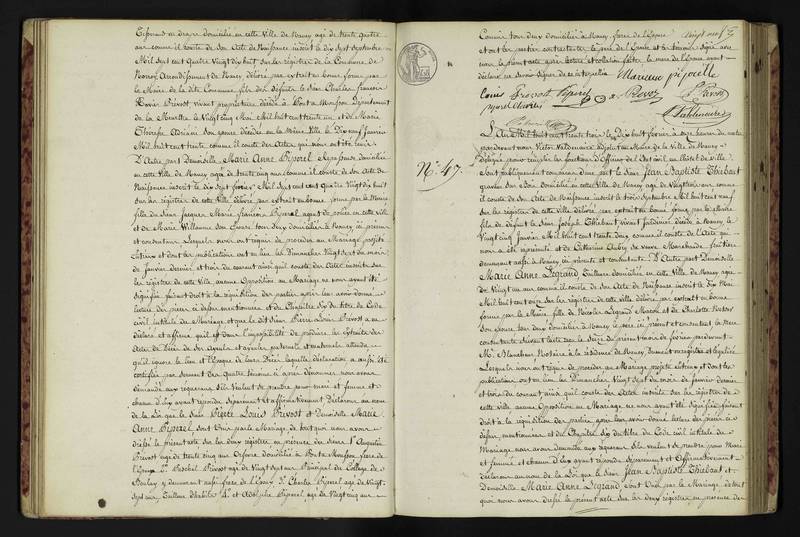 en cette Ville de Nancy agé de trente quatre
ans comme il conste de son Acte de Naissance inscrit le dix Sept Septembre
Mil Sept Cent Quatre Vingt dix huit sur les registres de la Commune de
Arrondissement de Nancy délivré par extrait en bonne forme par
le Maire de la dite Commune fils de défunts le Sieur Charles François
Xavier Prevost vivant propriétaire décédé à Pont à Mousson Département
de la Meurthe le Vingt cinq Mai Mil huit cent trente un et de Marie
Thérèse son épouse décédée en la même Ville le Dix neuf Janvier
Mil huit cent trente comme il conste des Actes qui nous ont été remis
D'Autre part Demoiselle Marie Anne Piperel domiciliée
en cette Ville de Nancy agée de trente cinq ans comme il conste de son Acte de
Naissance inscrit le dix sept Mil Sept cent Quatre Vingt dix huit
sur les registres de cette Ville délivré par extrait en bonne forme par le Maire
fille de Sieur Jacques Marie François Piperel agent de police en cette ville
et de Marie Willaume son Epouse tous deux domiciliés à Nancy ici présents
et consentans Lesquels nous ont requis de procéder au Mariage projetté
entre eux et dont les publications ont eu lieu les Dimanches Vingt Sept du mois
de Janvier dernier et trois du courant ainsi qu'il conste des Actes inscrits sur
les registres de cette Ville, aucune Opposition au Mariage ne nous ayant été
signifiée faisant droit à la réquisition des parties après leur avoir donné
lecture des pièces ci dessus mentionnées et du Chapitre Six du titre du Code
civil intitulé du Mariage et que le dit Sieur Pierre Louis Prevost a
déclaré et affirmé qu'il est dans l'impossibilité de produire les extraits des
Actes de Décès de ses Ayeuls et ayeules paternels et maternels attendu
qu'il ignore le lieu et l'Epoque de leurs Décès laquelle déclaration a aussi été
certifiée par serment des Quatre témoins ci après dénommés nous avons
demandé aux requerans s'ils veulent se prendre pour mari et femme et
chacun d'eux ayant répondu séparément et affirmativement Déclarons au nom
de la Loi que le Sieur Pierre Louis Prevost et Demoiselle Marie
Anne Piperel sont Unis par le Mariage de tout quoi nous avons
dressé le présent acte sur les deux registres en présence des Sieurs Augustin
Prevost agé de trente cinq ans Orfevre domicilié à Pont à Mousson frère de
l'Epoux Prevost agé de Vingt Sept ans Principal du Collège de
Boulay y demeurant aussi frère de l'Epoux Charles Piperel agé de Vingt
Sept ans et Adolphe Piperel agé de Vingt cinq ans
tous deux domiciliés à Nancy, frères de l'Epouse Vingt neuf
et ont les parties contractantes le père de l'Epouse et les témoins signé avec
nous le présent acte après lecture et collation faites la mère de l'Epouse ayant
déclaré ne savoir signer de ce interpellée Marianne piperelle
Louis Prevost Piperel A. Prevost P. Prevost
N.° 47.
L'An Mil huit cent trente trois le Dix huit Février à onze heures du matin
pardevant nous Victor Adjoint au Maire de la Ville de Nancy
délégué pour remplir les fonctions d'Officier de l'Etat civil en l'hôtel de Ville
Sont publiquement comparus d'une part le Sieur Jean Baptiste Thiebaut
domicilié en cette Ville de Nancy agé de Vingt trois ans comme
il conste de son Acte de Naissance inscrit le trois Septembre Mil huit cent neuf
sur les registres de cette Ville délivré par extrait en bonne forme par le Maire
fils de défunt le Sieur Joseph Thiebaut vivant Jardinier décédé à Nancy le
Vingt cinq Janvier Mil huit cent trente deux comme il conste de l'Acte qui
nous a été représenté et de Catherine Aubry sa veuve Marchande fruitière
demeurant aussi à Nancy ici présente et consentante D'Autre part Demoiselle
Marie Anne Legrand Tailleuse domiciliée en cette Ville de Nancy agée
de Vingt un ans comme il conste de son Acte de Naissance inscrit le dix Mai
Mil huit cent onze sur les registres de cette ville délivré par extrait en bonne
forme par le Maire, fille de Nicolas Legrand Maçon et de Charlotte
son épouse tous deux domiciliés à Nancy le père ici présent et consentant, la mère
consentante suivant Acte reçu le Seize du présent mois de février pardevant
M.e Blancheur Notaire à la résidence de Nancy dûment enregistré et légalisé
Lesquels nous ont requis de procéder au Mariage projetté entre eux et dont les
publications ont eu lieu les Dimanches Vingt Sept du mois de Janvier dernier
et trois du courant ainsi qu'il conste des Actes inscrits sur les registres de
cette ville aucune Opposition au Mariage ne nous ayant été signifiée faisant
droit à la réquisition des parties, après leur avoir donné lecture des pièces ci
dessus mentionnées et du Chapitre Six du titre du Code civil intitulé du
Mariage nous avons demandé aux requerans s'ils veulent se prendre pour Mari
et femme et chacun d'eux ayant répondu séparément et Affirmativement
Déclarons au nom de la Loi que le Sieur Jean Baptiste Thiebaut et
Demoiselle Marie Anne Legrand sont Unis par le Mariage, de tout
quoi nous avons dressé le présent acte sur les deux registres, en présence des